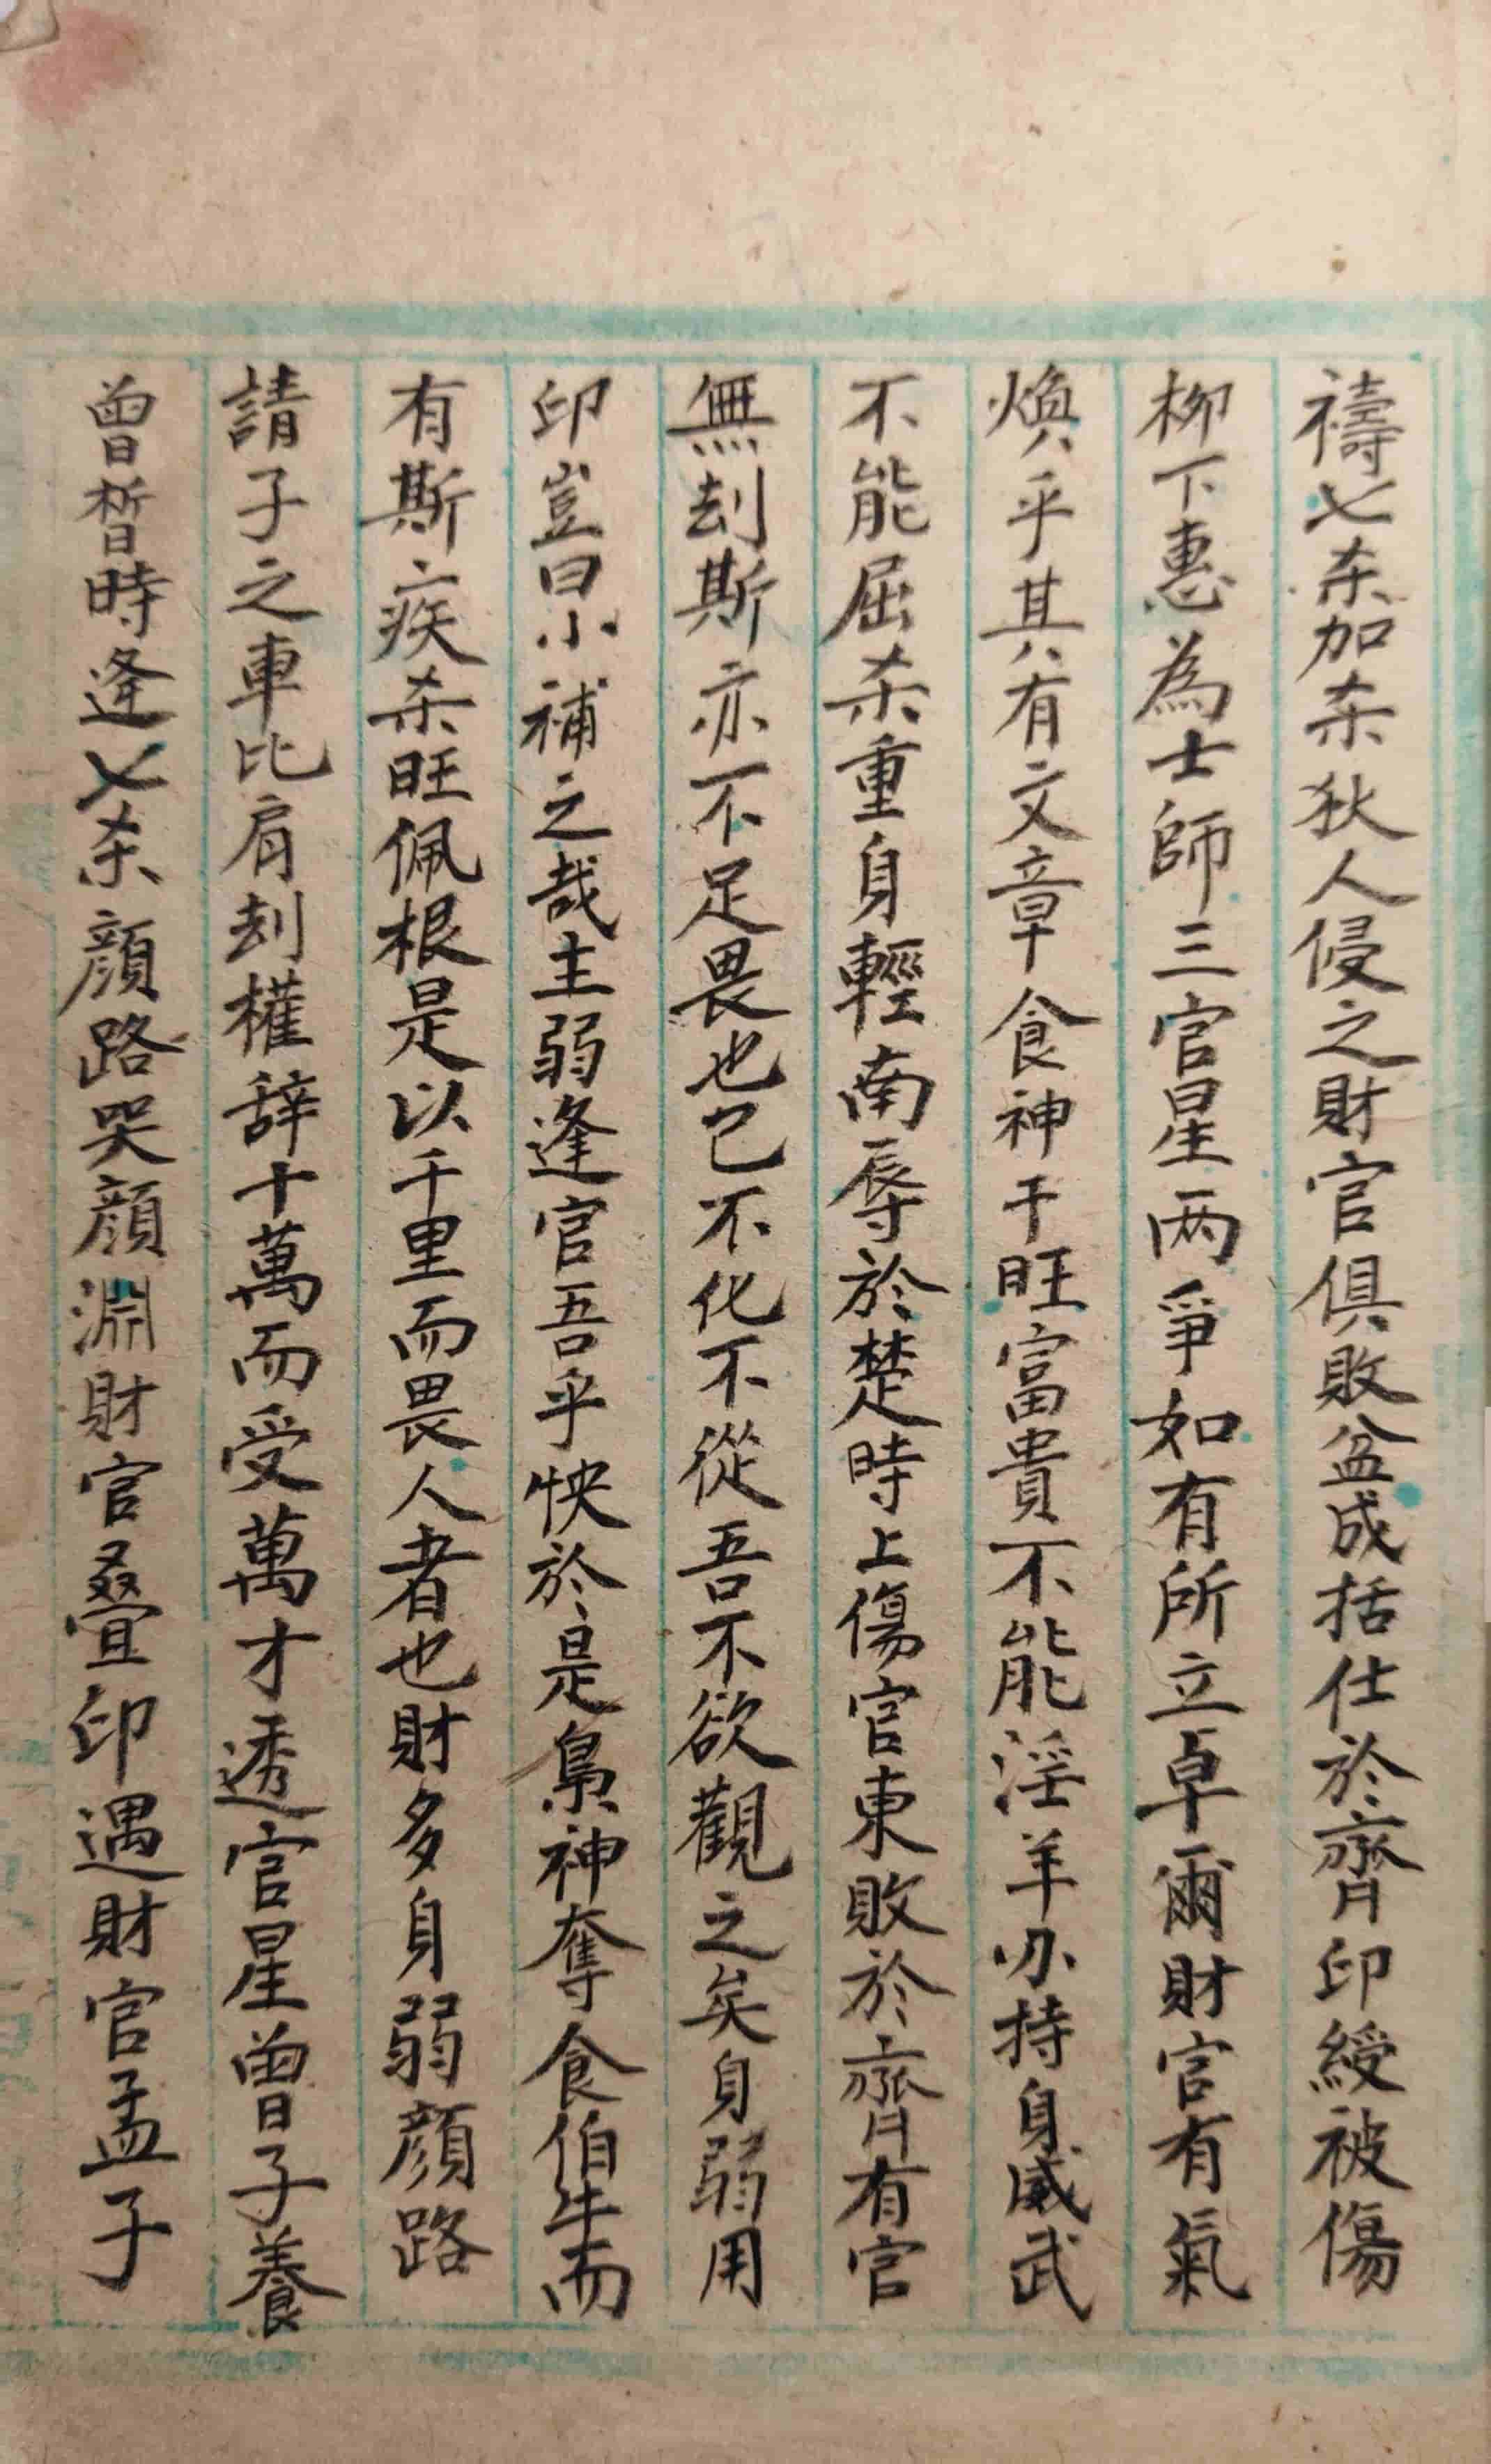 禱七杀加杀狄人侵之財官俱敗盆成括仕於齊印綬被傷
柳下惠為士師三官星两爭如有所立卓爾財官有氣
煥乎其有文章食神干旺富貴不能淫羊刃持身威武
不能屈杀重身輕南辱於楚時上傷官東敗於齊有官
無刦斯亦不足畏也已不化不從吾不欲觀之矣身弱用
印豈曰小補之哉主弱逢官吾乎怏於是梟神奪食伯牛而
有斯疾杀旺佩根是以千里而畏人者也財多身弱顔路
請子之車比肩刦權辞十萬而受萬才透官星曾子養
曾晳時逢七杀顔路哭顔淵財官疊印遇財官孟子